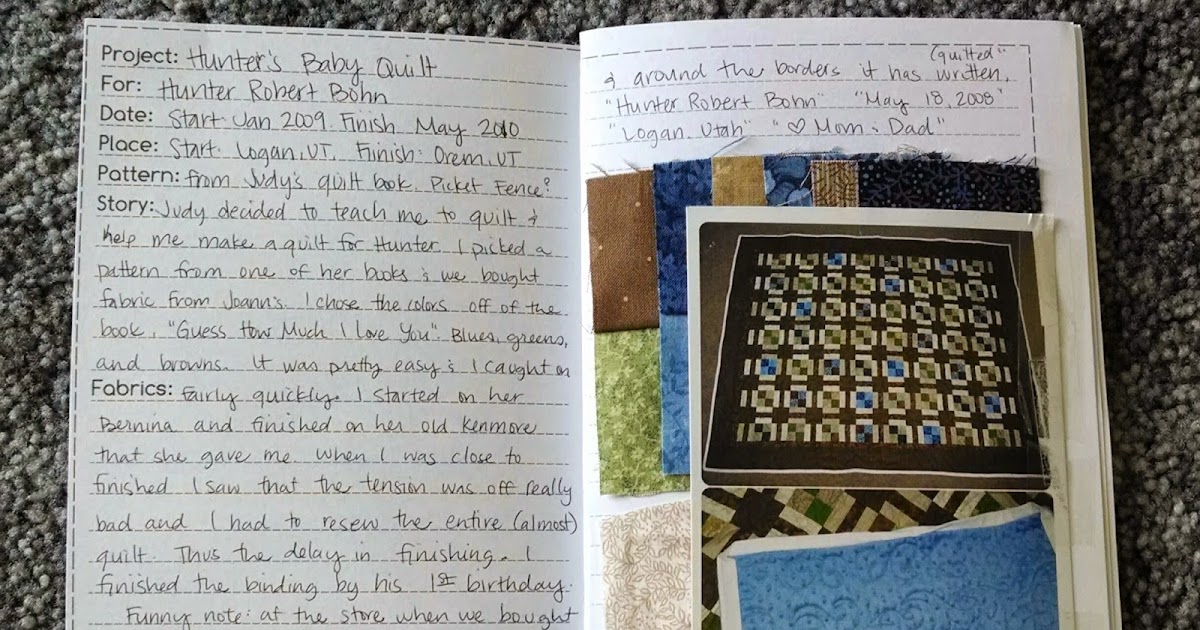 Project: Hunter's Baby Quilt
For: Hunter Robert Bohn
Date: Start: Jan 2009. Finish May 2010
Place: Start: Logan, UT. Finish: Orem, UT
Pattern: from Judy's quilt book. Picket Fence?
Story: Judy decided to teach me to quilt &
help me make a quilt for Hunter. I picked a
pattern from one of her books & we bought
fabric from Joann's. I chose the colors off of the
book, "Guess How Much I love You". Blues, greens,
and browns. It was pretty easy & I caught on
Fabrics: Fairly quickly. I started on her
Bernina and finished on her old Kenmore
that she gave me. When I was close to
finished I saw that the tension was off really
bad and I had to resew the entire (almost)
quilt. Thus the delay in finishing. I
finished the binding by his 1st birthday.
Funny note: at the store when we bought
(quilted)
& around the borders it has written,
"Hunter Robert Bohn" "May 18, 2008"
"Logan, Utah" "♡ Mom & Dad"